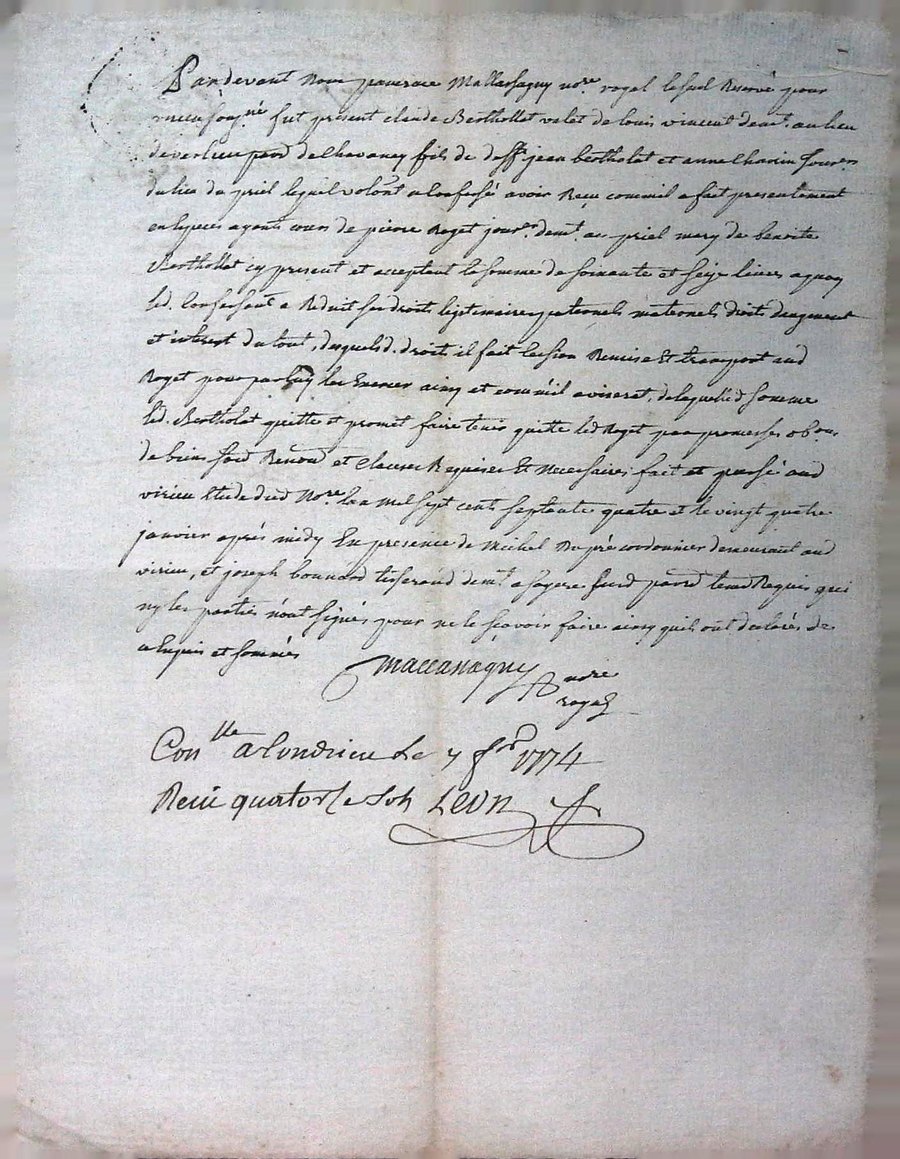 Pardevant Nous pancrace Mallassagny no.re royal lesuel Reservé pour
virieu soug.né fut présent claude Berthollet valet de louis vincent dem.t au lieu
de verlieu par.d de Chavaney fils de deff. jean bertholat et anne Chavin jour.rs
du lieu du priel lequel volon.t a Confessé avoir Reçu comm'il a fait presentement
en especes ayants cours de pierre Roget jour.r dem.t au priel mary de benoite
Berthollet icy present et acceptant la somme de soixante et seize livres a quoy
led. Confessant a Reduit ses droits légitimaires paternels maternels droit daugment
et interest du tout, desquels d. droits il fait Cession Remise Et transport aud
Roget pour par luy les Exercer ainsy et comm'il aviserat, de laquelle d somme
led. Bertholat quitte et promet faire tenir quitte led Roget par promesses ob.on
de biens Renon.d et clauses Requises Et Necessaires, fait et passé aud
virieu Etude dud No.re lan mil sept cents septante quatre et le vingt quatre
janvier après midy En presence de Michel Dupré cordonnier demeurant aud
virieu, et joseph bonnard tisserand dem.t a sur.d par.d tem.d Requis qui
ny les parties n'ont signés pour ne le sçavoir faire ainsy quils ont declarés de
ce Enquis et sommés
Mallassagny no.re
royal
Con.lle a Condrieu le 7 f.er 1774
Recu quatorse sols Leon